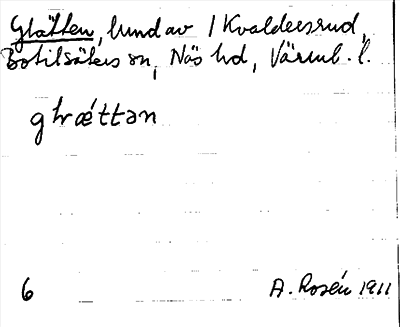 Glätten, lund av 1 Kvaldersrud,
Botilsäters sn, Näs hd, Värml. l.
glræ´ttən
6 A. Rosén 1911